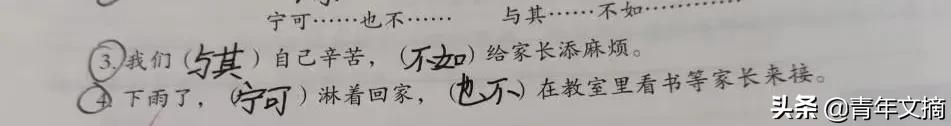 宁可……也不…… 与其……不如…………
③.我们(与其)自己辛苦,(不如)给家长添麻烦。
④.下雨了,(宁可)淋着回家,(也不)在教室里看书等家长来接。
头条 @青年文摘